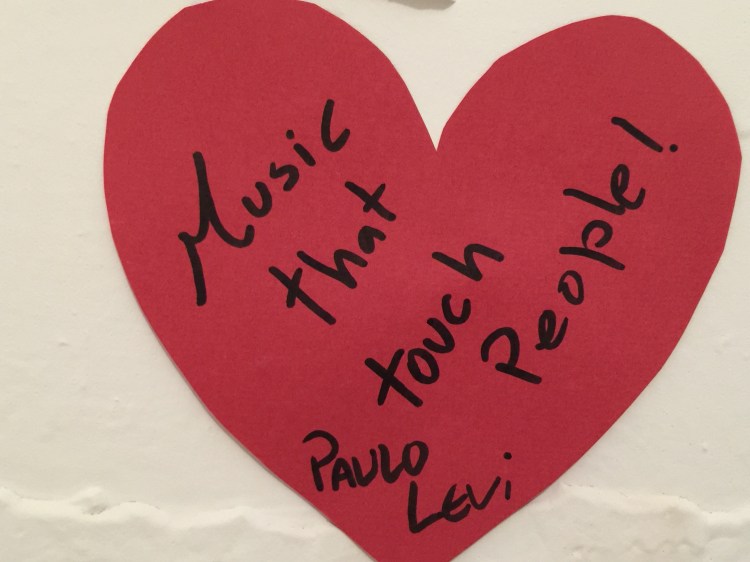 Music
that
touch
People!
PAULO
LEVi